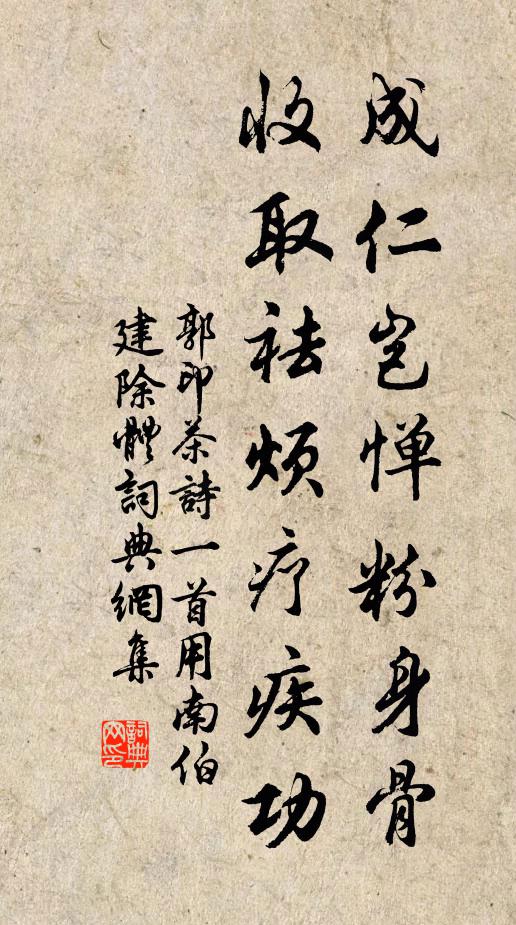 成仁岂惮粉身骨
收取祛烦疗疾功
郭印茶詩一首用南伯
建除體詞典網集
詞典
网印